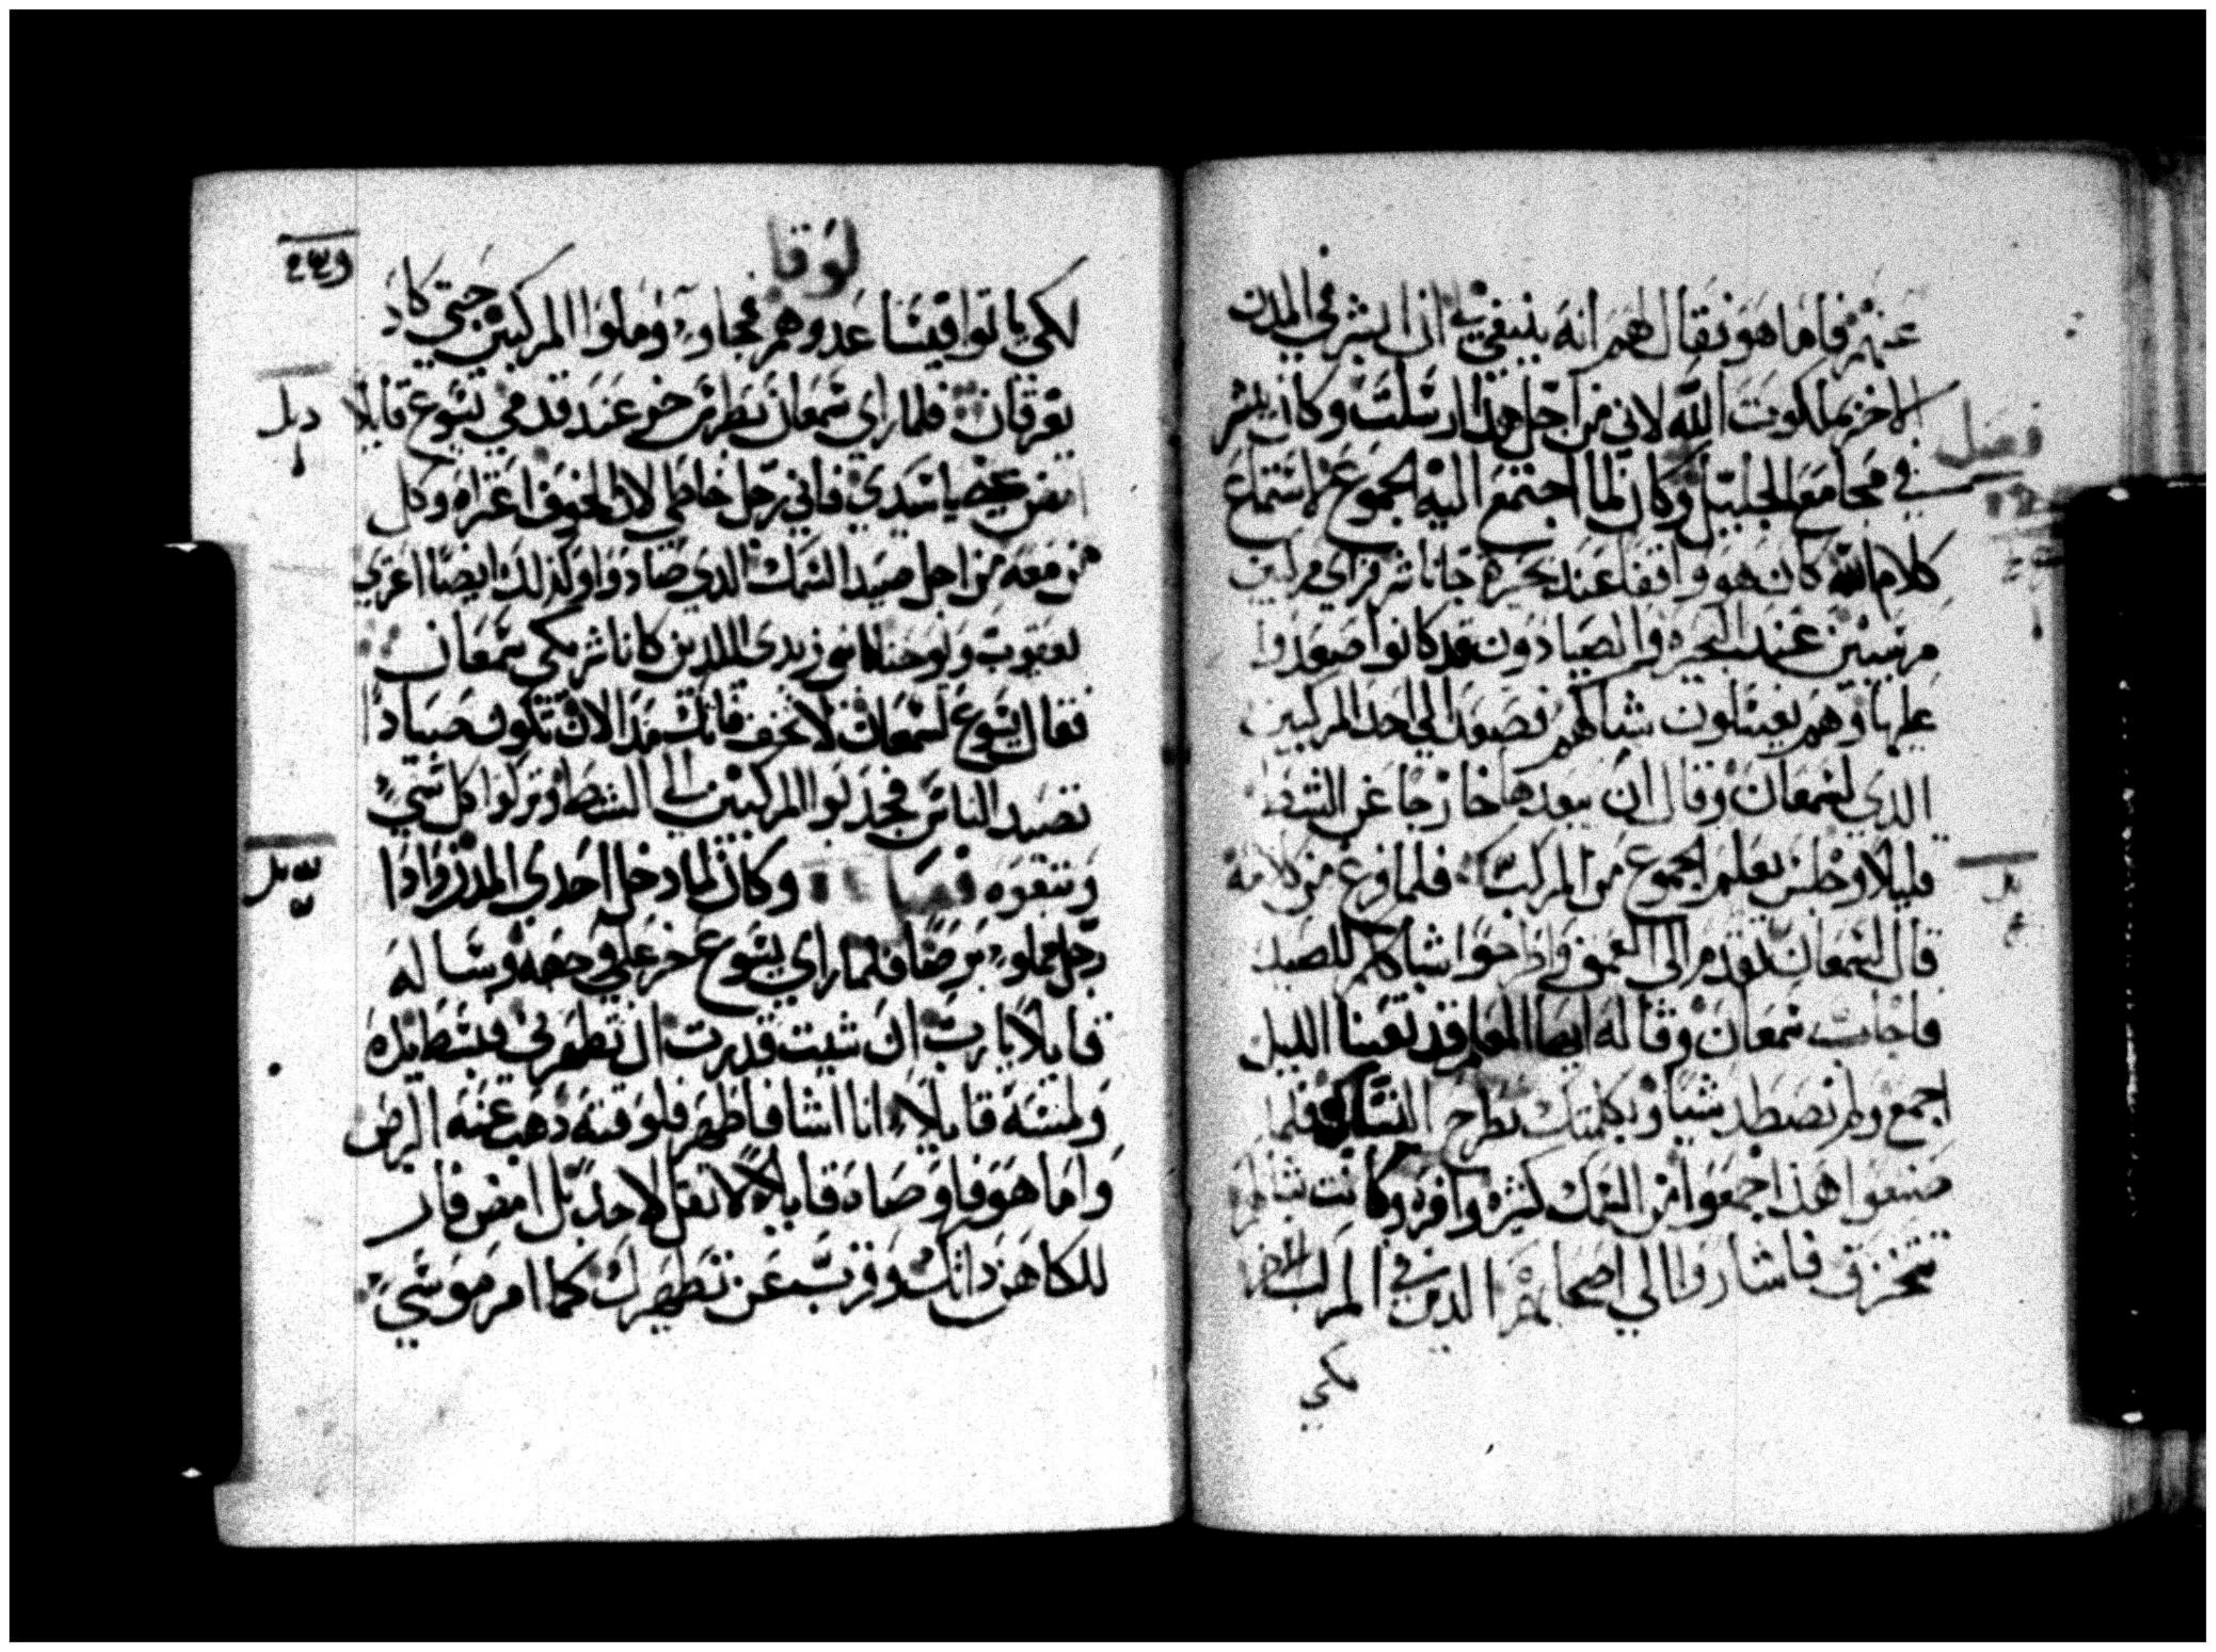 عنهم فاما هو فقال لهم انه ينبغي لي ان ابشر في المدن
الاخر بملكوت الله لاني من اجل هذا ارسلت وكان يبشر
فصل
في مجامع الجليل وكان لما اجتمع اليه الجموع لاستماع
كلام الله كان هو واقفا عند بحيرة جاناشر فراى مركبين
مرسيين عند البحيرة والصيادون قد كانوا صعدوا
عليها وهم يغسلون شباكهم فصعد الي احد المركبين
الذي لشمعان وقال ان يبعدها خارجا عن الشط
قليلا وجلس يعلم الجموع من المركب فلما فرغ من كلامه
قال لشمعان تقدم الى العمق وارخوا شباككم للصيد
فاجاب شمعان وقال له ايها المعلم قد تعبنا الليل
اجمع ولم نصطد شيا وبكلمتك نطرح الشباك فلما
صنعوا هذا جمعوا من السمك كثره وافره وكانت شباكهم
تتخرق فاشاروا الي اصحابهم الذين في المركب الاخر
لكي
لوقا
لكي ياتوا فيساعدوهم فجاوء وملوا المركبين حتي كاد
يغرقان فلما راي شمعان بطرس خر عند قدمي يسوع قايلا
امض عني يا سيدي فاني رجل خاطي لان الخوف اعتراه وكل
من معه من اجل صيد السمك الدي صادوا وكذلك ايضا اعتري
يعقوب ويوحنا ابني زبدي اللدين كانا شريكي شمعان
فقال يسوع لشمعان لا تخف فانك مند الان تكون صيادا
تصيد الناس فجدبوا المركبين الى الشط وتركوا كل شيء
وتبعوه فصل وكان لما دخل احدي المدن واذا
رجل مملوء برصا فلما راي يسوع خر علي وجهه وساله
قايلا يارب ان شيت قدرت ان تطهرني فبسط يده
ولمسه قايلا انا اشا فاطهر فلوقته دهب عنه البرص
واما هو فاوصاه قايلا لا تقل لاحد بل امض فار
للكاهن داتك وقرب عن تطهيرك كما امر موسي